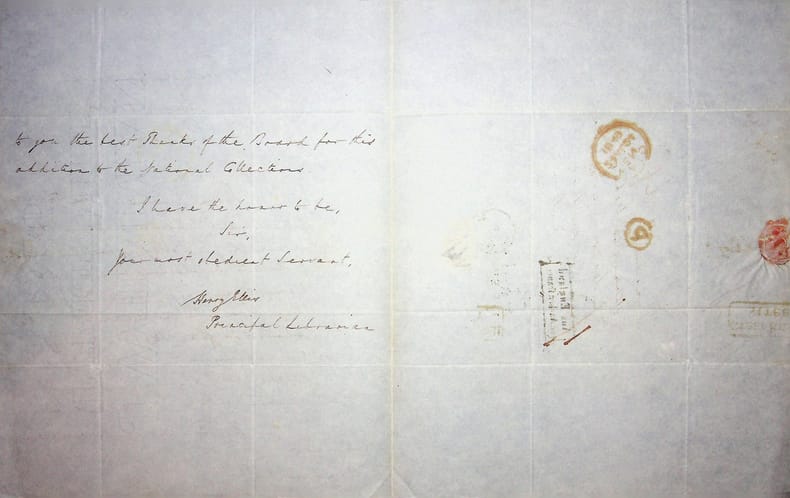 to you the best Thanks of the Board for this
addition to the National Collections
I have the honor to be,
Sir,
Your most obedient Servant,
Henry Ellis
Principal Librarian